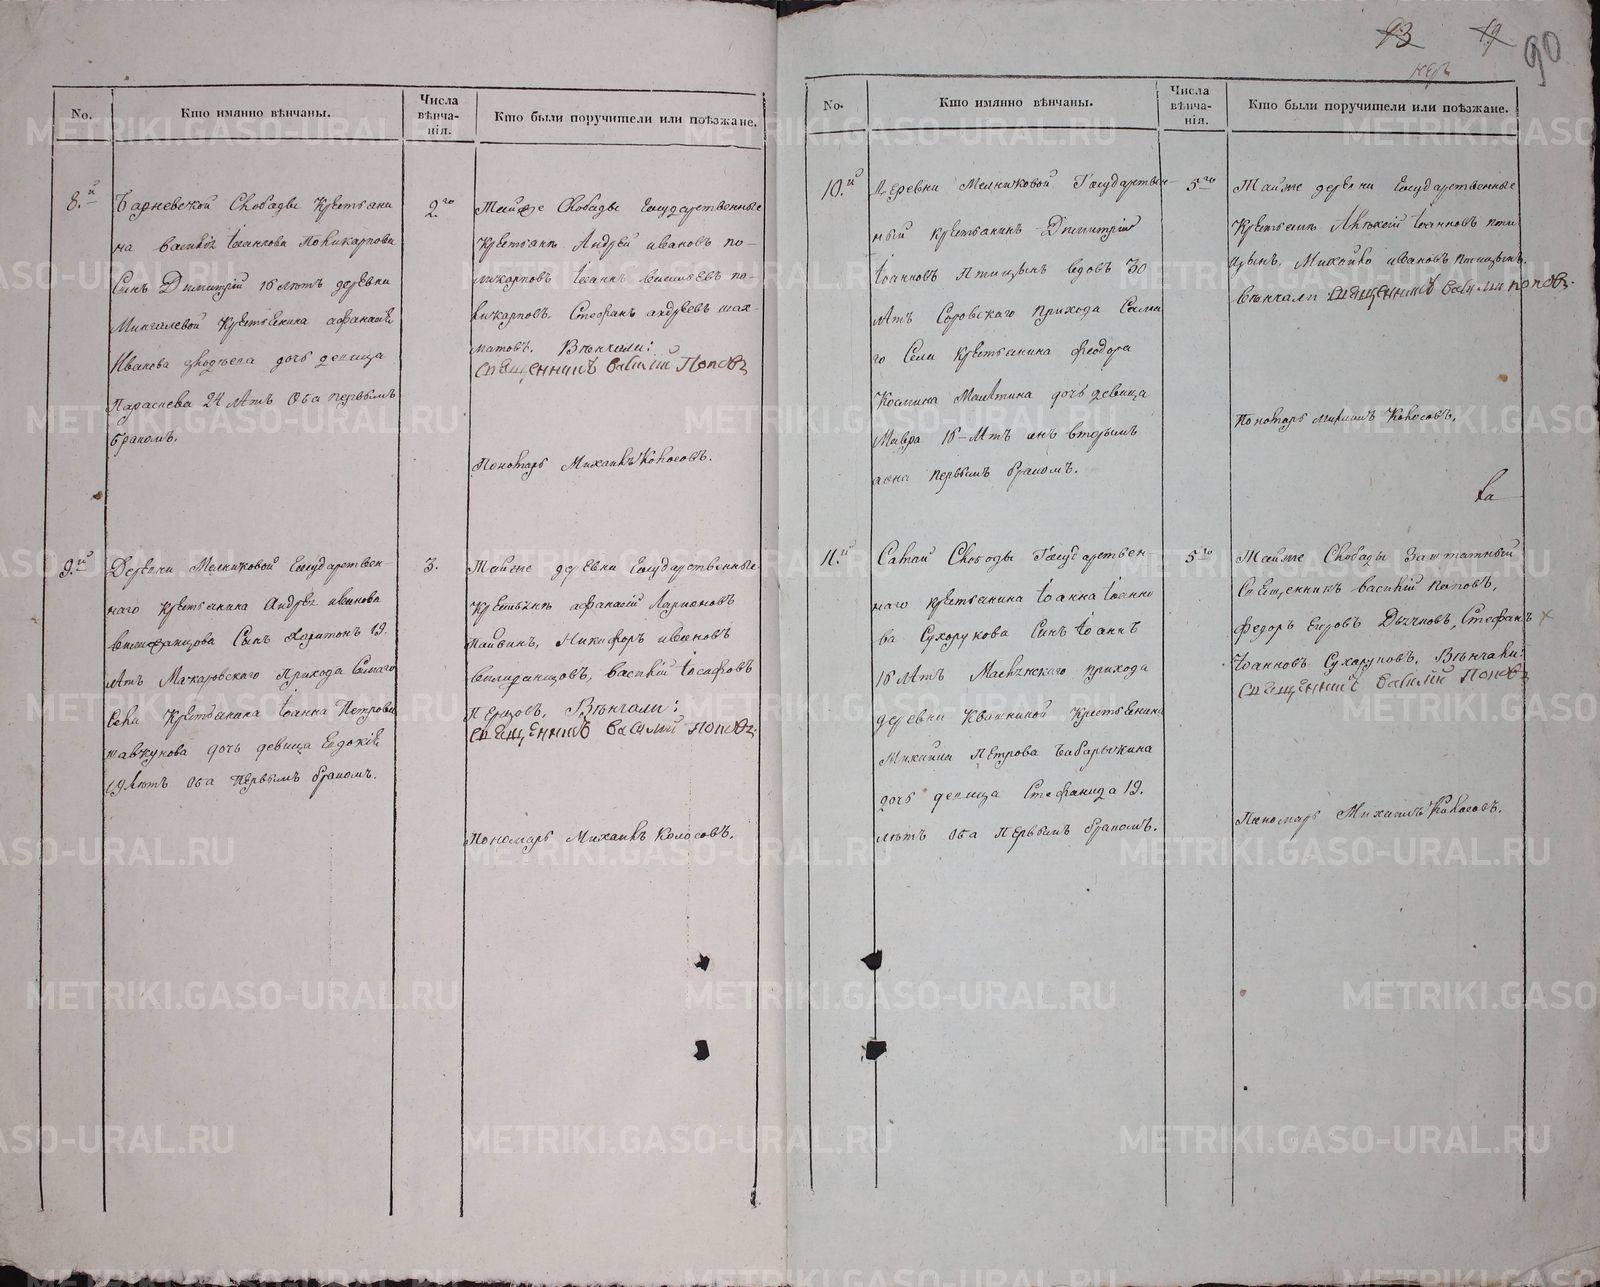 93 19 90
No.
Кто имянно вѣнчаны.
Числа вѣнча-
нія.
Кто были поручители или поѣзжане.
8.й
Барневской Слободы Крестьяни
на Василія Іоаннова Поликарпова
Сынъ Димитрій 18 лѣтъ деревни
Крестьянина Афанасія
Иванова дочь девица
Параскева 24 лѣтъ Оба первымъ
бракомъ.
2.го
Тойже Слободы Государственные
Крестьяне Андрей Ивановъ По-
ликарповъ Іоаннъ По-
ликарповъ, Стефанъ Андреевъ Шах-
матовъ. Вѣнчали:
Священникъ Василій Поповъ
Пономарь Михаилъ Колосовъ.
9.й
Деревни Мелниковой Государствен-
наго крестьянина Андрея Иванова
Сынъ Харитонъ 19.
лѣтъ Макаровскаго Прихода Самаго
Села Крестьянина Іоанна Петрова
дочь девица Евдокія
19 лѣтъ Оба Первымъ бракомъ.
3.
Тойже деревни Государственные
Крестьяне Афанасій Ларионовъ
Никифоръ Ивановъ
Василій Іосифовъ
Вѣнчали:
Священникъ Василій Поповъ.
Пономарь Михаилъ Колосовъ.
No.
Кто имянно вѣнчаны.
Числа
вѣнча-
нія.
Кто были поручители или поѣзжане.
10.й
Деревни Мелниковой Государствен-
ный крестьянинъ Димитрій
Іоанновъ Птицынъ вдовъ 30
лѣтъ Соровскаго прихода Сама
го Села крестьянина Феодора
Космина дочь девица
Мавра 18 лѣтъ онъ вторымъ
а она первымъ бракомъ.
5го
Тойже деревни Государственные
Крестьяне Алексій Іоанновъ Пти
цынъ, Михайло Ивановъ Птицынъ.
Вѣнчали Священникъ Василій Поповъ.
Пономарь Михаилъ Колосовъ.
11.й
Самой Слободы Государствен
наго крестьянина Іоанна Іоанно
ва Сухорукова Сынъ Іоаннъ
18 лѣтъ прихода
деревни Квашниной Крестьянина
Петрова Бабарыкина
дочь девица Стефанида 19.
лѣтъ Оба Первымъ бракомъ.
5го
Тойже Слободы Заштатный
Священникъ Василій Поповъ,
Федоръ Стефанъ
Іоанновъ Сухоруковъ. Вѣнчали:
Священникъ Василій Поповъ
Пономарь Михаилъ Колосовъ.
METRIKI.GASO-URAL.RU